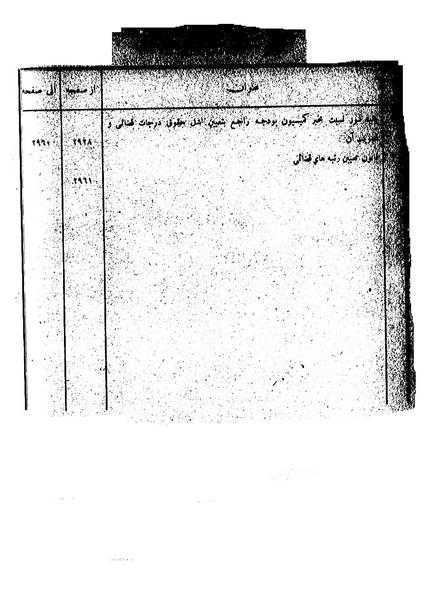 عنوان از صفحه الی صفحه
نسبت بخبر کمیسیون بودجه راجع بتعیین اقل حقوق درجات قضائی و
آن ۲۹۲۸ ۲۹۶۰
قانون تعیین رتبه های قضائی
۲۹۶۱